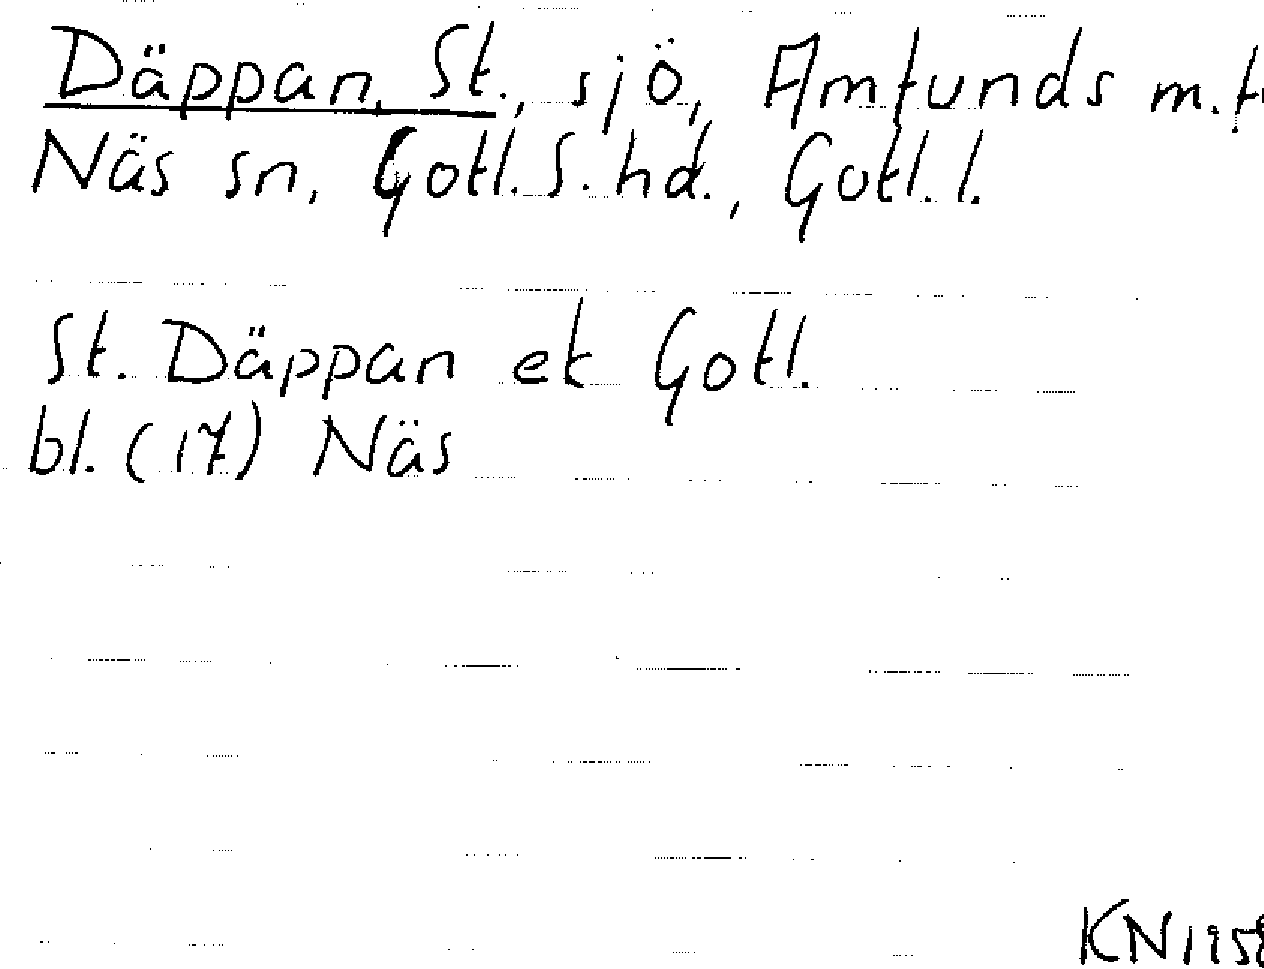 Däppan, St., sjö, Amfunds m.fl
Näs sn, Gotl. S. hd., Gotl. l.
St. Däppan ek Gotl.
bl. (17) Näs
KN 1958